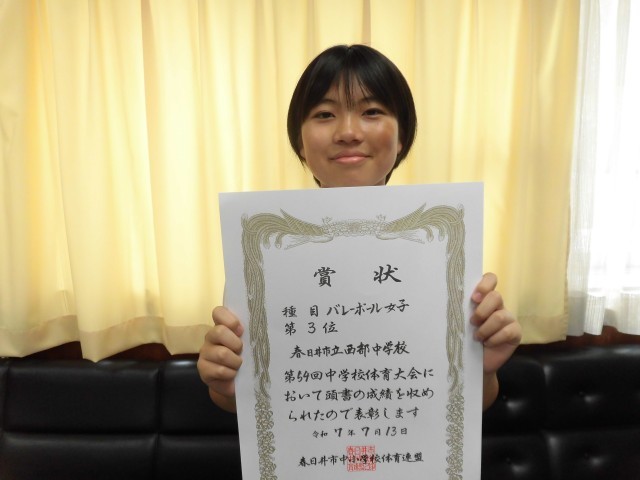 賞状
種目 バレーボール女子
第3位
春日井市立西部中学校
第59回中学校体育大会に
おいて頭書の成績を収め
られたので表彰します
令和7年7月13日
春日井市中小学校体育連盟